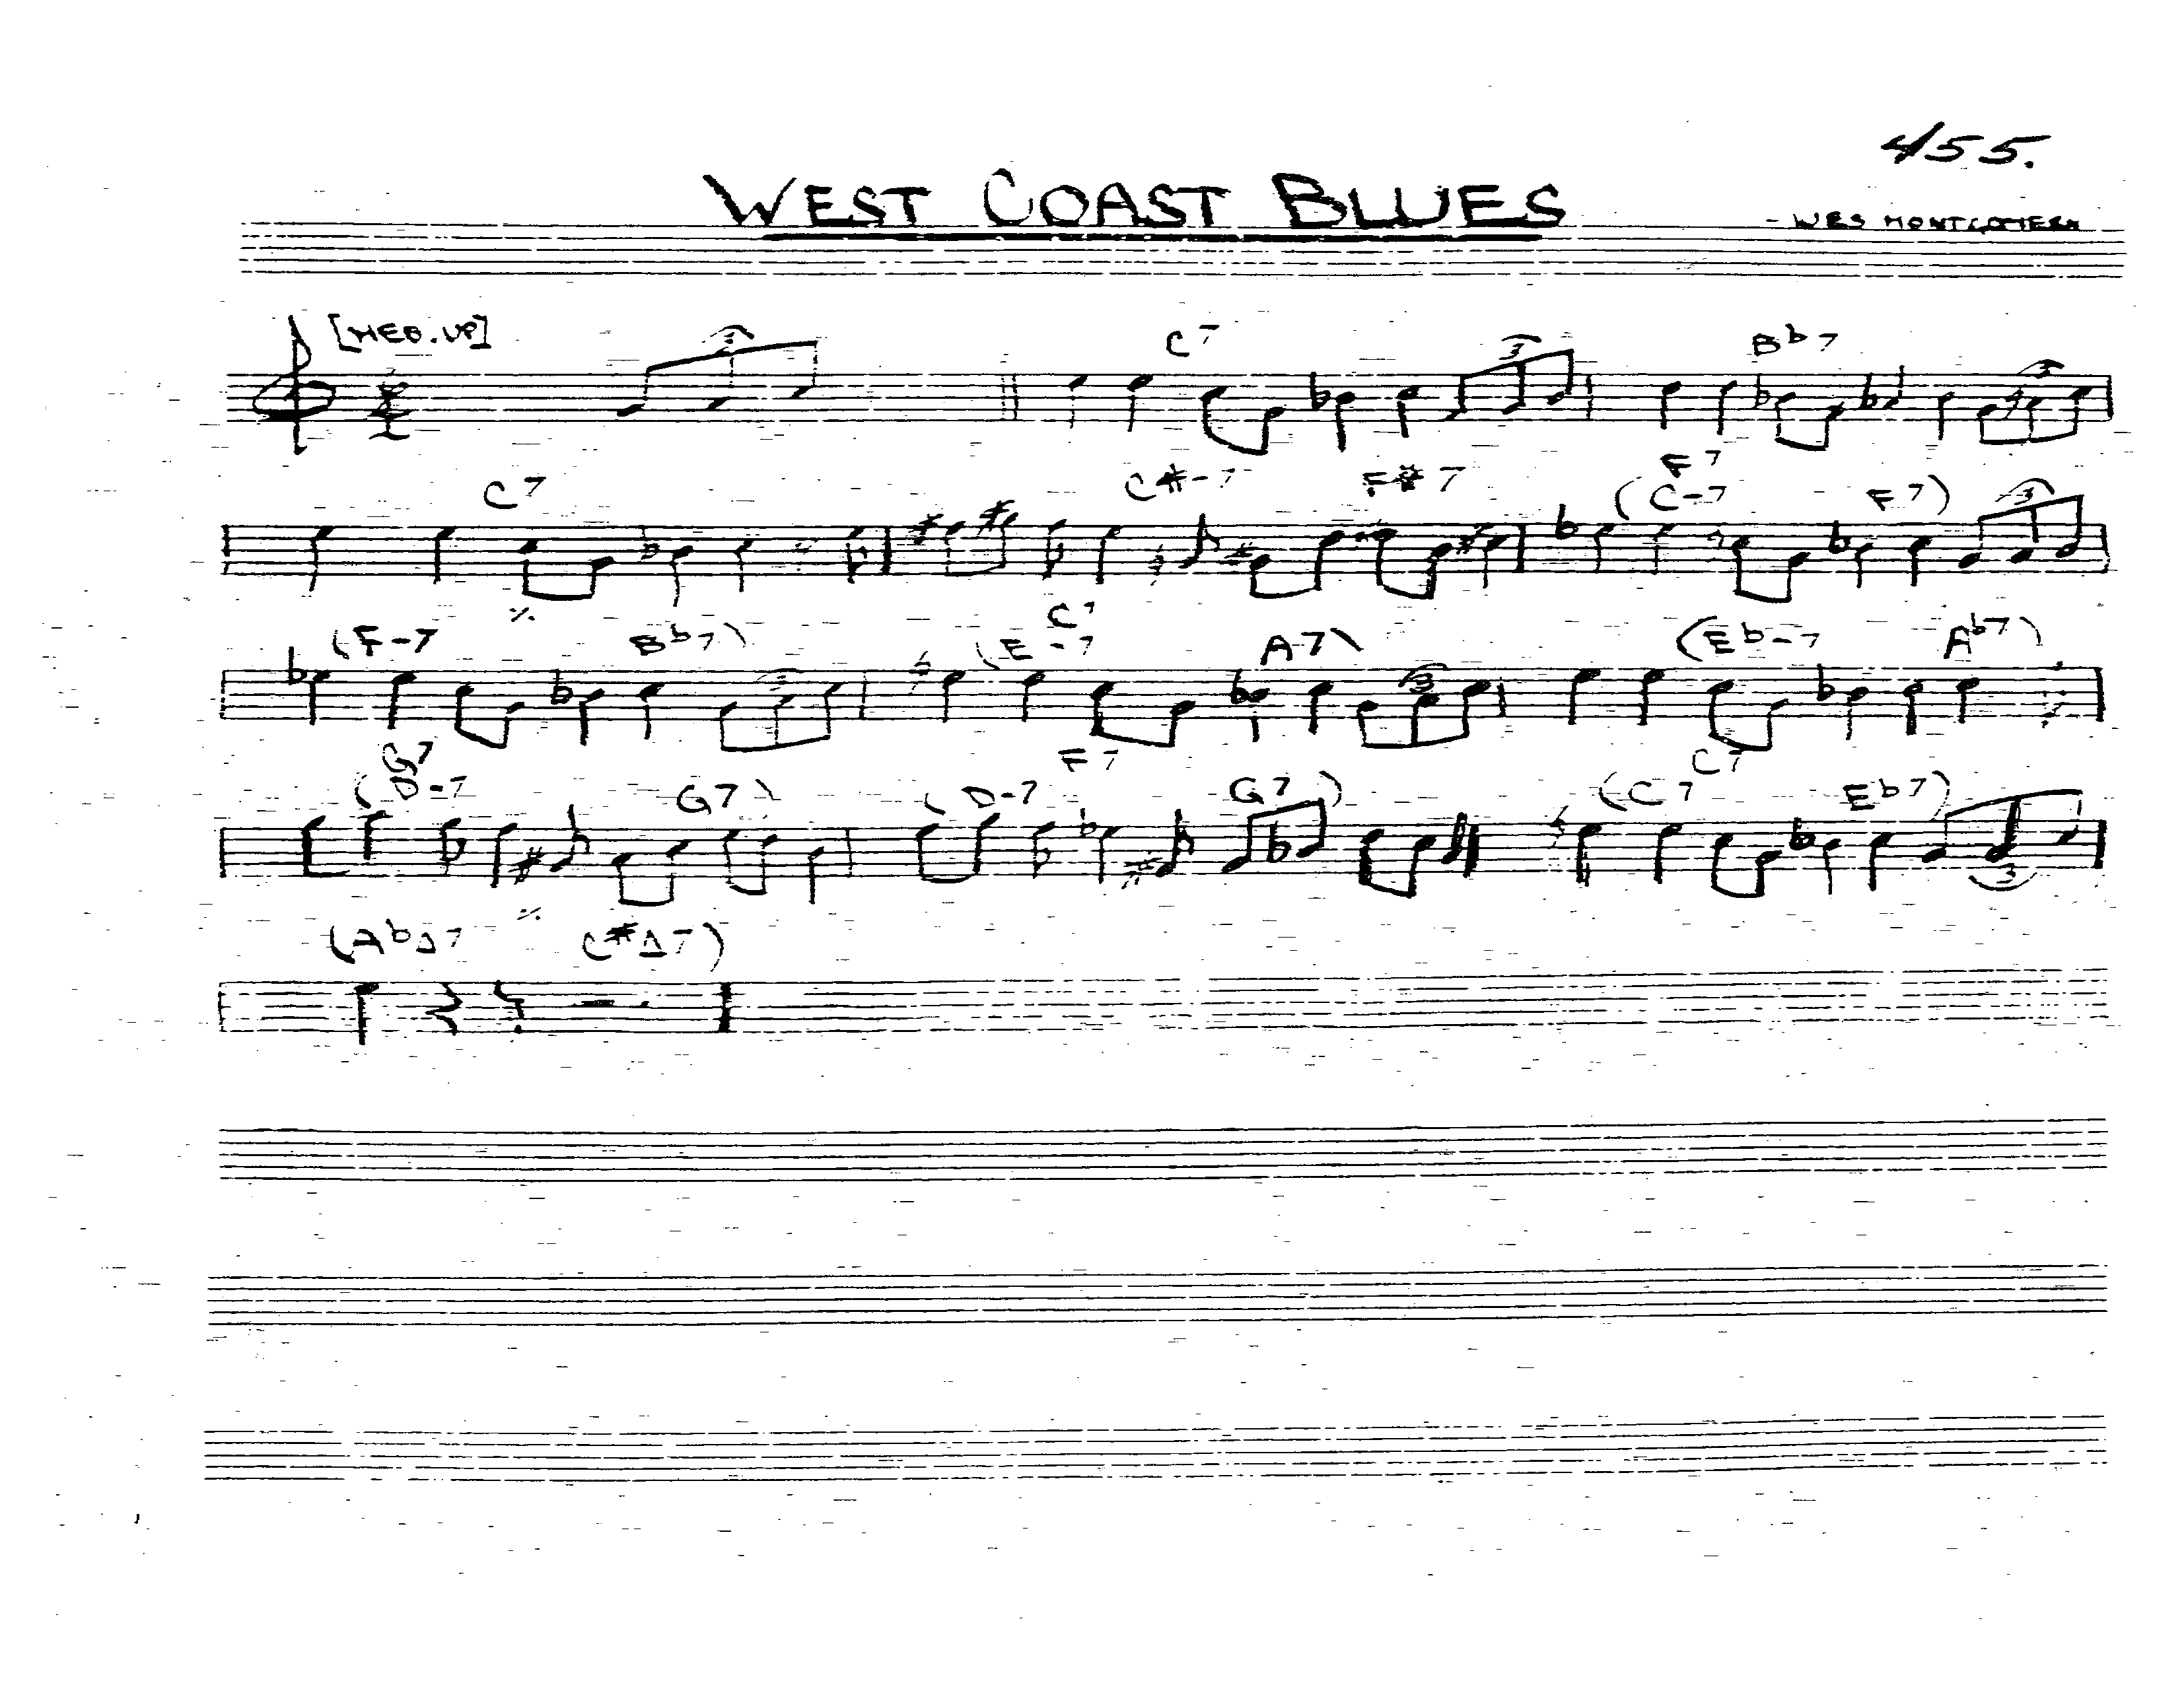 455.
WEST COAST BLUES
- WES MONTGOMERY
[MED. UP] 3 C7 3 Bb7 3
C7 C#-7 F#7 F7
(C-7 F7) 3
(F-7 Bb7) 3 C7
(E-7 A7) 3 (Eb-7 Ab7)
G7 F7 C7
(D-7 G7) (D-7 G7) (C7 Eb7) 3
(AbΔ7 C#Δ7)